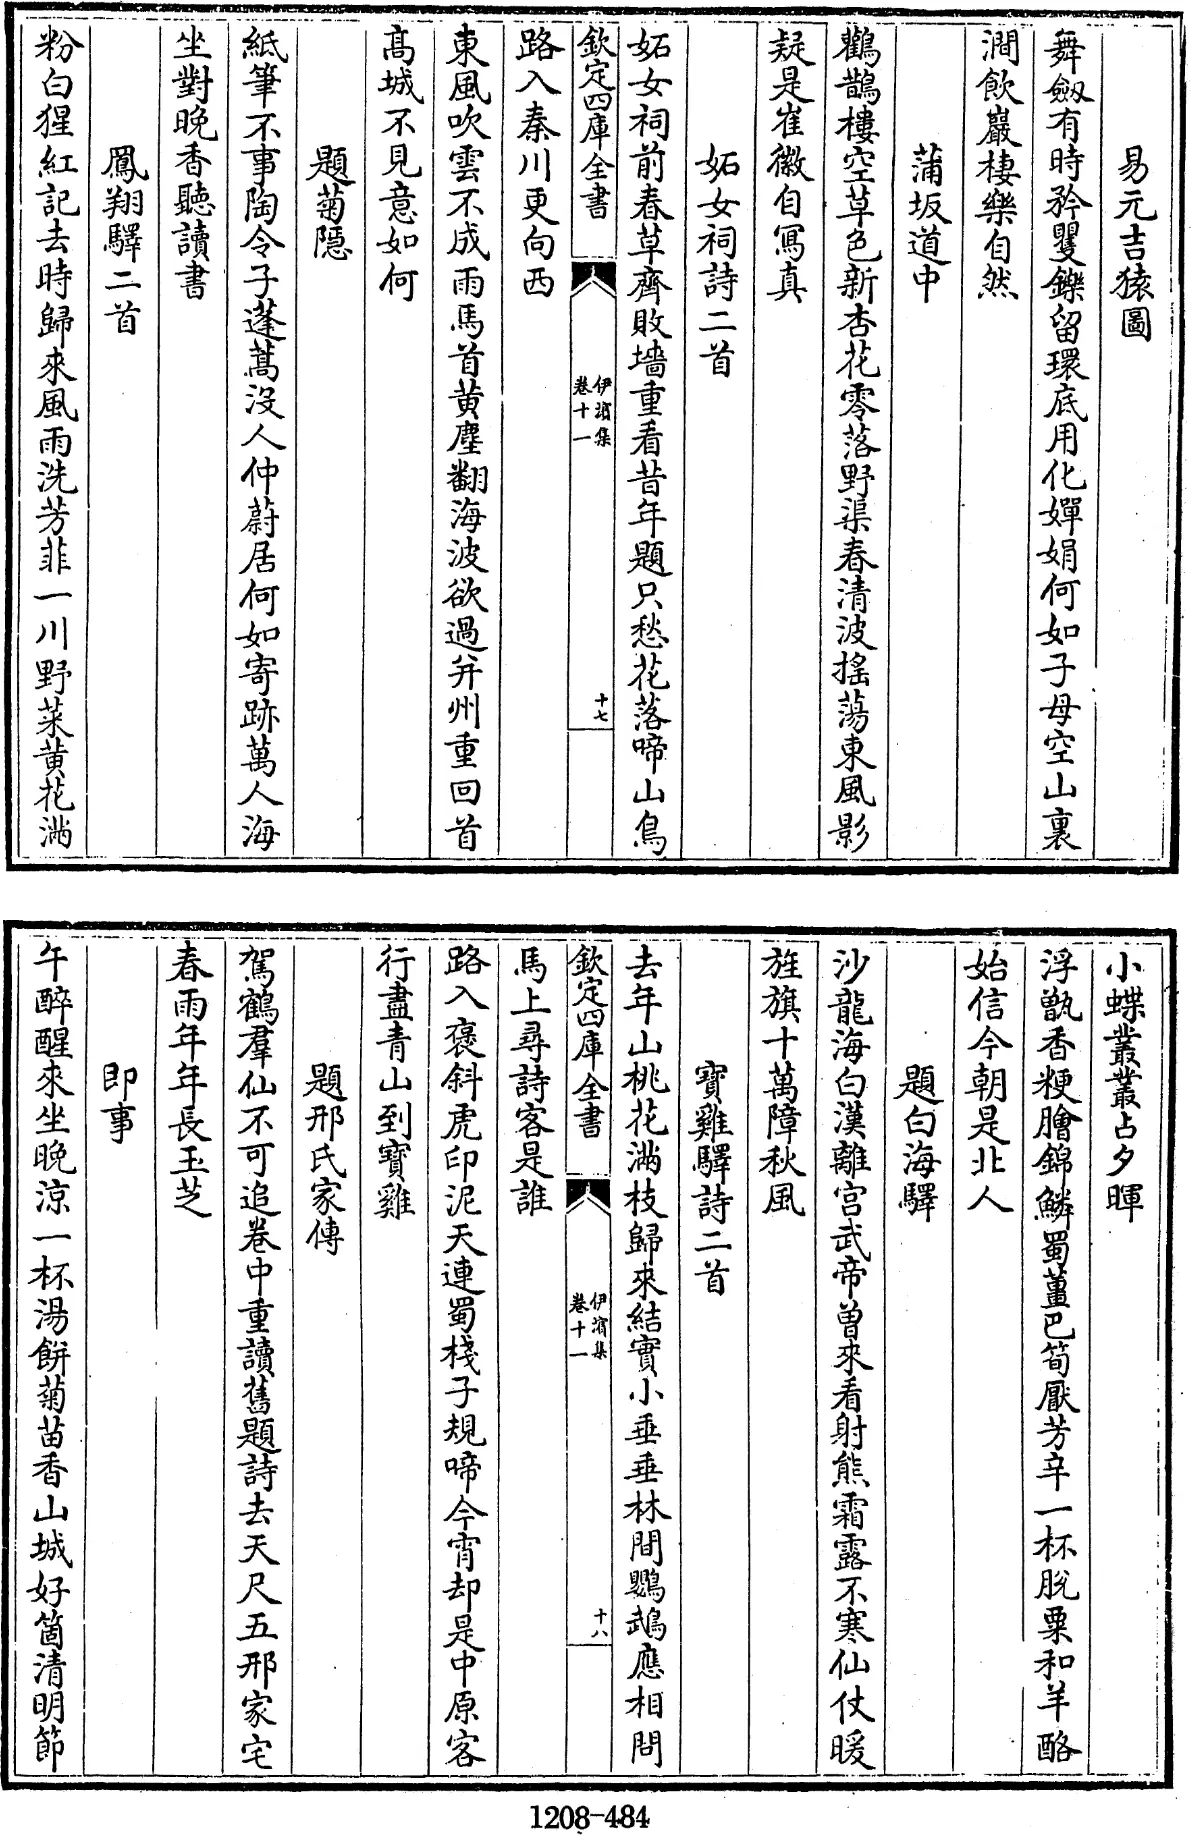 易元吉猿圖
舞劔有時矜矍鑠留環底用化嬋娟何如子母空山裏
澗飲巖棲樂自然
蒲坂道中
鸛鵲樓空草色新杏花零落野渠春清波搖蕩東風影
疑是崔徽自寫真
妬女祠詩二首
妬女祠前春草齊敗墻重看昔年題只愁花落啼山鳥
欽定四庫全書
伊濱集
卷十一
十七
路入秦川更向西
東風吹雲不成雨馬首黄塵翻海波欲過并州重回首
髙城不見意如何
題菊隱
紙筆不事陶令子蓬蒿沒人仲蔚居何如寄跡萬人海
坐對晚香聽讀書
鳳翔驛二首
粉白猩紅記去時歸來風雨洗芳菲一川野菜黄花滿
小蝶叢叢占夕暉
浮甑香粳膾錦鱗蜀薑巴筍厭芳辛一杯脱粟和羊酪
始信今朝是北人
題白海驛
沙龍海白漢離宮武帝曾來看射熊霜露不寒仙仗暖
旌旗十萬障秋風
寶雞驛詩二首
去年山桃花滿枝歸來結實小垂垂林間鸚鵡應相問
欽定四庫全書
伊濱集
卷十一
十八
馬上尋詩客是誰
路入褒斜虎印泥天連蜀棧子規啼今宵却是中原客
行盡青山到寶雞
題邢氏家傳
駕鶴羣仙不可追卷中重讀舊題詩去天尺五邢家宅
春雨年年長玉芝
即事
午醉醒來坐晚涼一杯湯餅菊苗香山城好箇清明節
1208-484